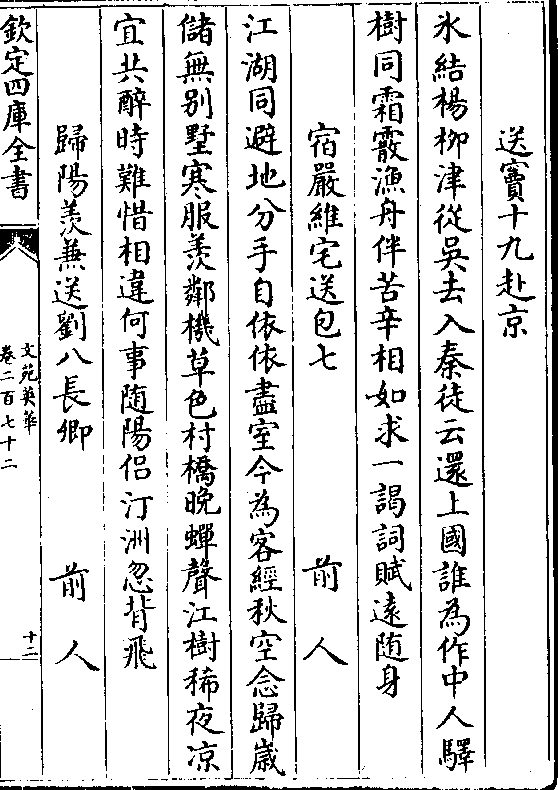 送竇十九赴京
氷結楊栁津從吳去入秦徒云還上國誰為作中人驛
樹同霜霰漁舟伴苦辛相如求一謁詞賦遠随身
宿嚴維宅送包七　前人
江湖同避地分手自依依盡室今為客經秋空念歸歳
儲無别墅寒服羡鄰機草色村橋晩蟬聲江樹稀夜凉
宜共醉時難惜相違何事随陽侣汀洲忽背飛
歸陽羡兼送劉八長卿　前人
欽定四庫全書
文苑英華
卷二百七十二
十二